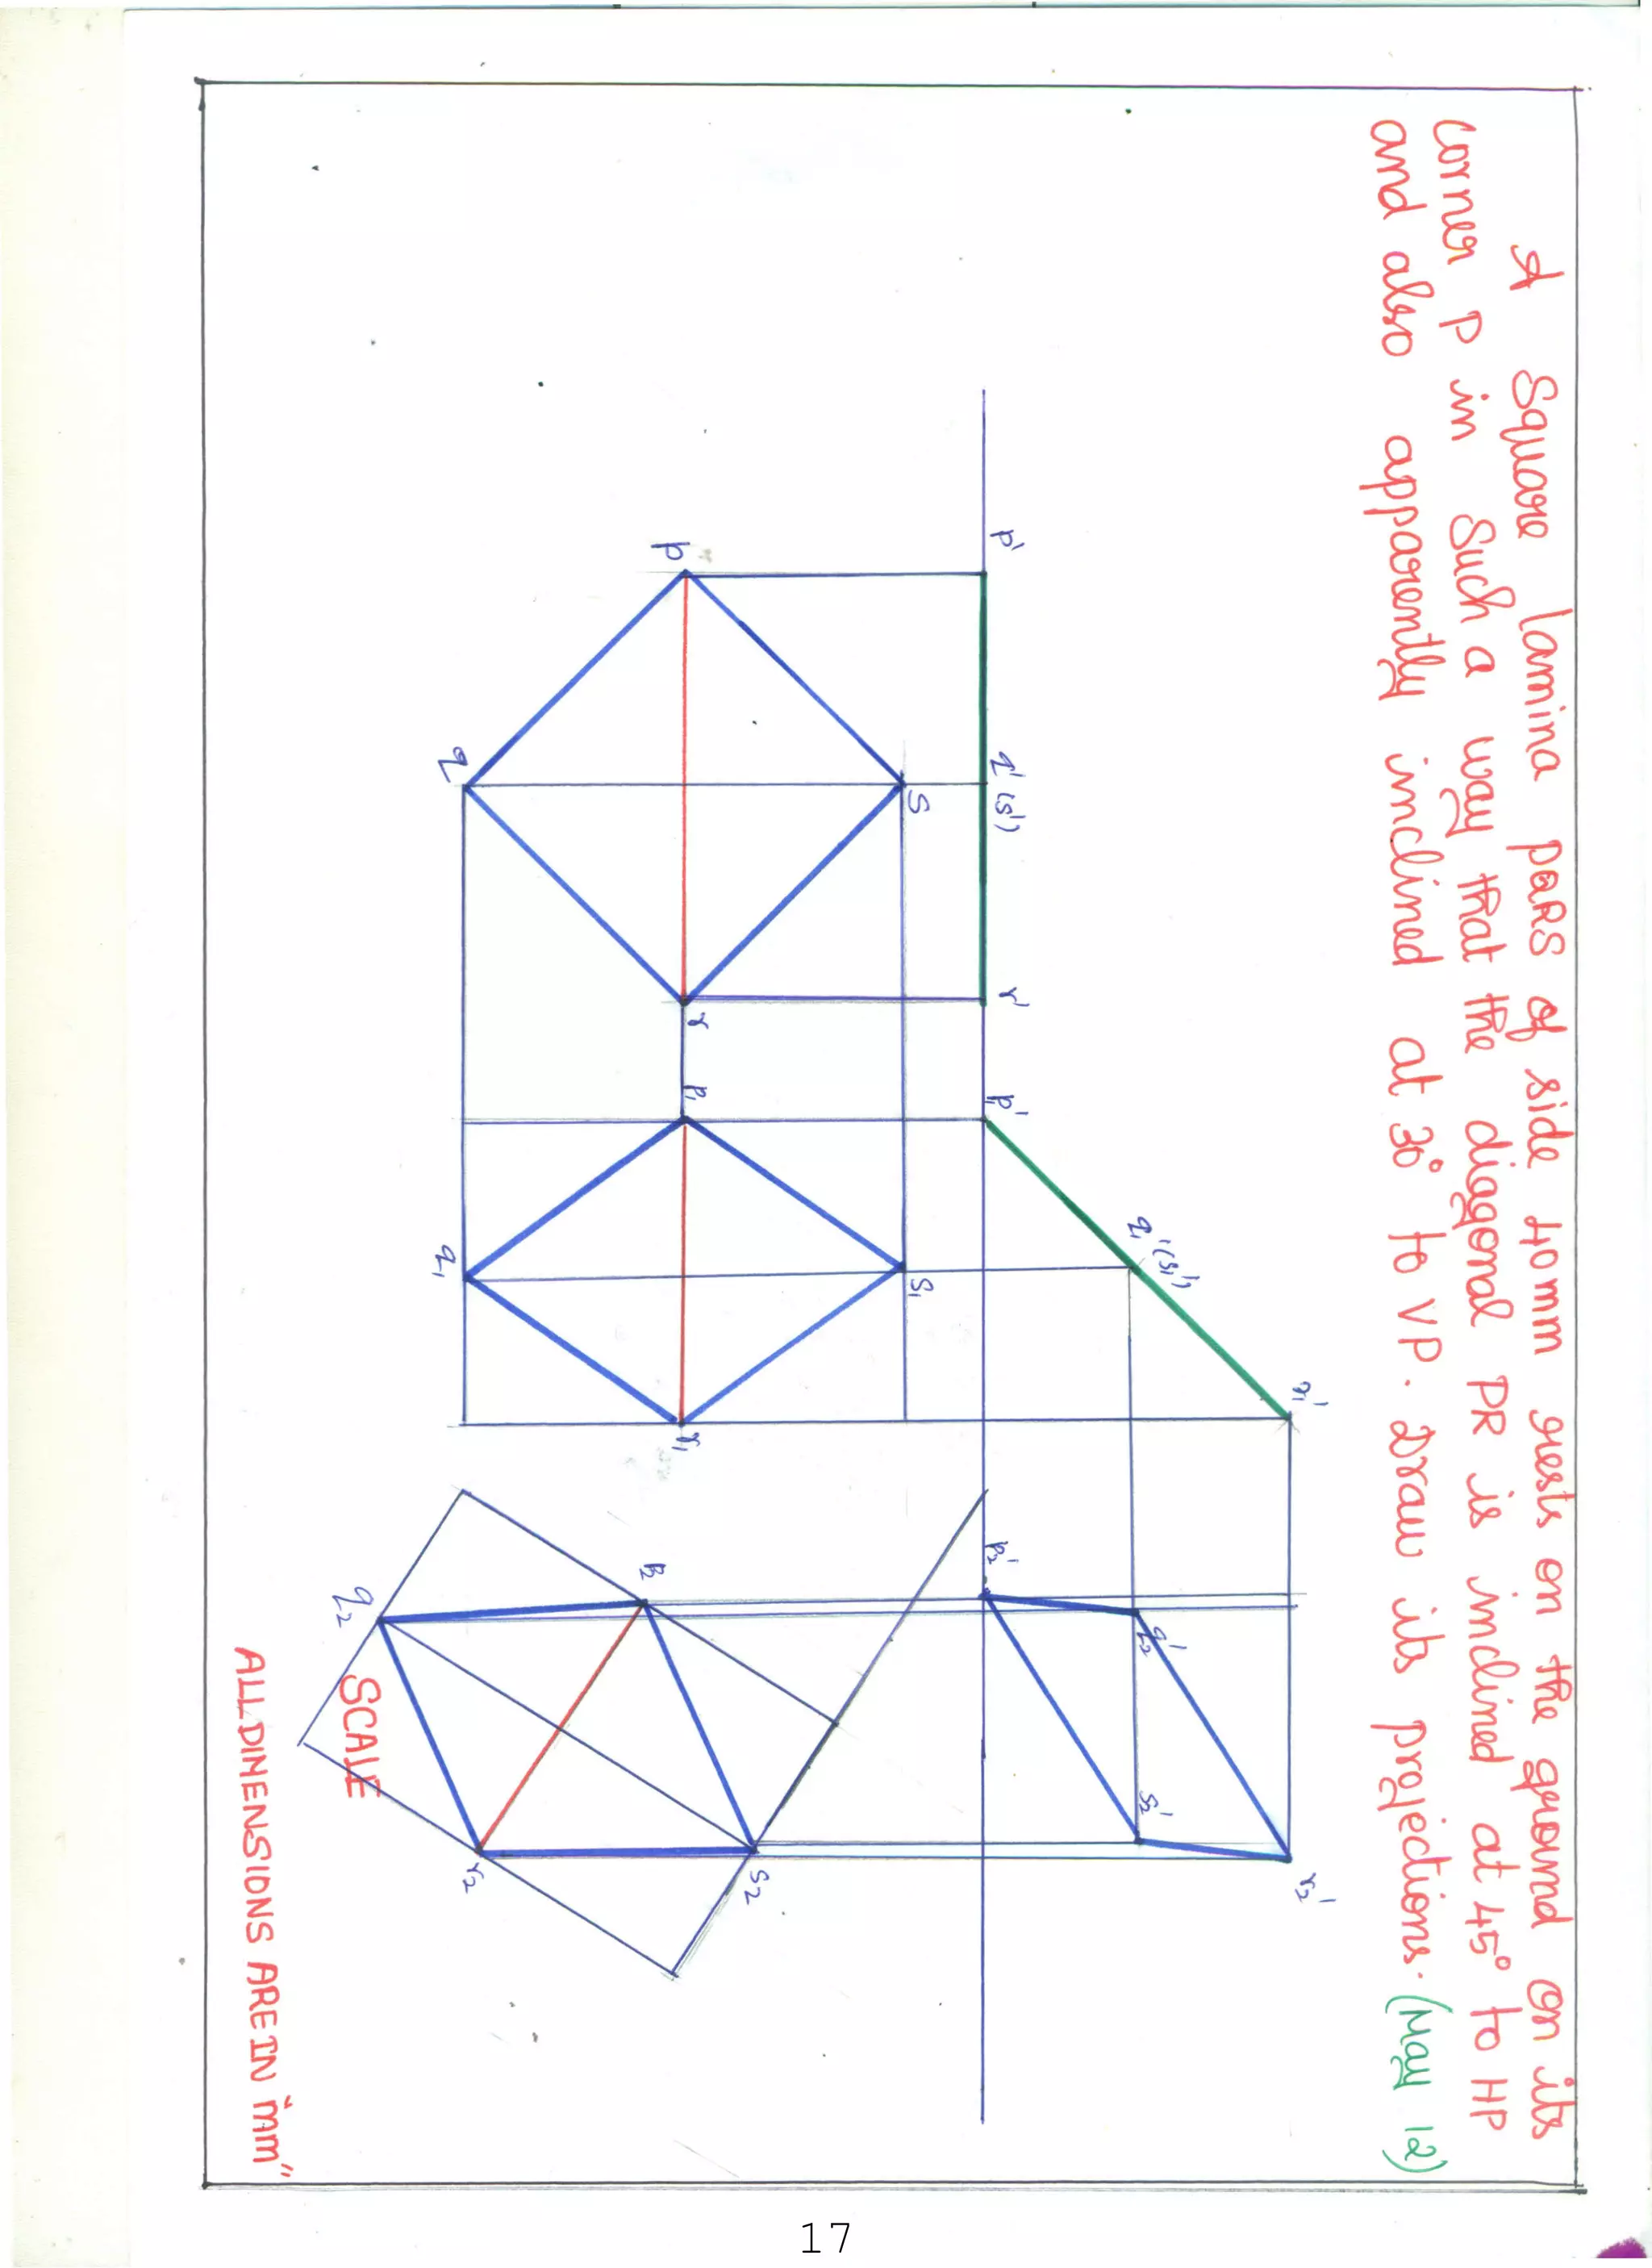 A Square lamina PQRS of side 40mm rests on the ground on its
corner P in Such a way that the diagonal PR is inclined at 45° to HP
and also apparently inclined at 30° to VP. Draw its projections. (May 12)
p' q'(s') r' p₁' q₁'(s₁') r₁' p₂' q₂' s₂' r₂'
p s q r p₁ s₁ q₁ r₁ p₂ q₂ r₂ s₂
SCALE
ALL DINENSIONS ARE IN "mm"
17